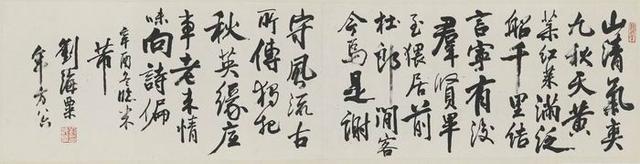 山清氣爽
九秋天黃
菊紅茱滿泛
船千里結
言寧有後
羣賢畢
至猥居前
杜郎閒客
今焉是謝
守風流古
所傳獨把
秋英緣底
事老來情
味向詩偏
芾
辛酉冬臨米
劉海粟
年方八六